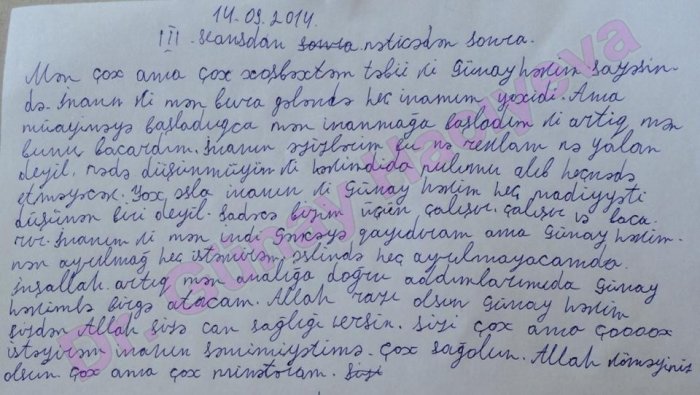 14.09.2014.
III seansdan sonra nəticədən sonra.
Mən çox ama çox xoşbəxtəm təbii ki Günay həkim sayəsin-
də. İnanın ki mən bura gələndə heç inamım yoxidi. Ama
müayinəyə başladıqca mən inanmağa başladım ki artıq mən
bunu bacardım. İnanın əzizlərim bu nə reklam nə yalan
deyil, nədə düşünmüyün ki həkimdida pulumu alıb heçnədə
etməyəcək. Yox əsla inanın ki Günay həkim heç madiyyəti
düşünən biri deyil. Sadəcə bizim üçün çalışır. Çalışır və baca-
rır. İnanın ki mən indi Gəncəyə qayıdıram ama Günay həkim-
nən ayrılmağ heç istəmirəm, əslində heç ayrılmayacamda.
İnşallah artıq mən analığa doğru addımlarımıda Günay
həkimlə birgə atacam. Allah razı olsun Günay həkim
sizdən Allah sizə can sağlığı versin. Sizi çox ama çoooox
istəyirəm inanın səmimiyətimə. Çox sağolun. Allah köməyiniz
olsun çox ama çox minətdaram. Sizi
Dr. Günay Nagiyeva